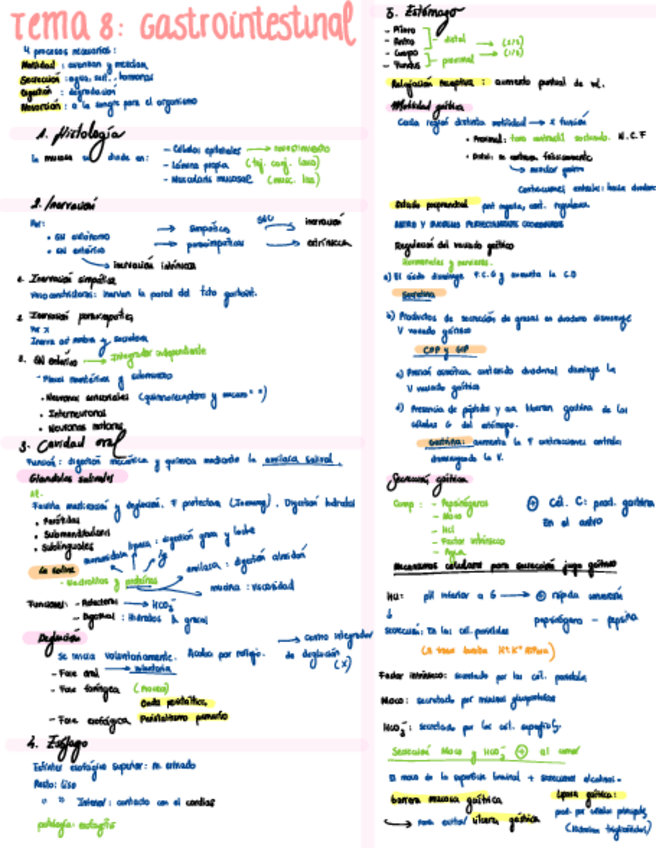 Tema 8: Gastrointestinal
4 procesos necesarios:
Motilidad: avanzan y mezclan
Secreción: agua, sust., hormonas
Digestión: degradación
Absorción: a la sangre para el organismo
1. Histología
la mucosa se divide en:
- Células epiteliales → revestimiento
- Lámina propia (tej. conj. laxo)
- Muscularis mucosae (musc. liso)
2. Inervación
Por:
• SN autónomo → simpático
• SN entérico → parasimpático
SNC → inervación extrínseca
→ inervación intrínseca
1. Inervación simpática
Vasoconstrictores: inervan la pared del tcto gastroint.
2. Inervación parasimpática
Por X
Inerva act motora y secretora
3. SN entérico → Integrador independiente
- Plexos mientérico y submucoso
• Neuronas sensoriales (quimiorreceptores y mecano " ")
• Interneuronas
• Neuronas motoras
3. Cavidad oral
Función: digestión mecánica y química mediante la amilasa salival.
Glándulas salivales
Facilita masticación y deglución. F protectora (Inmunog). Digestión hidratos
• Parótidas
• Submandibulares
• Sublinguales
La saliva
lipasa: digestión grasa y leche
Ig
amilasa: digestión almidón
mucina: viscosidad
- Electrolitos y proteínas
Funciones: - Protectora → HCO3-
- Digestiva: Hidratos & grasas
Deglución
Se inicia voluntariamente. Acaba por reflejo. → centro integrador de deglución (X)
- Fase oral → voluntaria
- Fase faríngea (Proceso)
Onda peristáltica
- Fase esofágica Peristaltismo primario
4. Esófago
Esfínter esofágico superior: m. estriado
Resto: liso
" " Inferior: contacto con el cardias
patología: esofagitis
5. Estómago
- Píloro
- Antro
- Cuerpo
- Fundus
distal → (2/3)
proximal → (1/3)
Relajación receptiva: aumento puntual de vol.
Motilidad gástrica
Cada región distinta motilidad → x función
• Proximal: tono contráctil sostenido. N.C.F
• Distal: se contrae fásicamente
Estado posprandial
ANTRO Y DUODENO PERFECTAMENTE COORDINADOS
Regulación del vaciado gástrico
Hormonales y nerviosos.
a) El ácido disminuye F.C.G y aumenta la C.D
Secretina
b) Productos de secreción de grasas en duodeno disminuye V vaciado gástrico
CCP y GIP
c) Presión osmótica contenido duodenal disminuye la V vaciado gástrico
d) Presencia de péptidos y aa liberan gastrina de las células G del estómago.
Gastrina: aumenta la F contracciones antrales disminuyendo la V.
Secreción gástrica
Comp: - Pepsinógenos
- Moco
- HCl
- Factor intrínseco
- Agua
⊕ Cél. G: prod. gastrina en el antro
Mecanismos celulares para secreción jugo gástrico
HCl: pH inferior a 5 → ⊕ rápida conversión pepsinógeno - pepsina
Secreción: En las cél. parietales
Factor intrínseco: secretado por las cél. parietales
Moco: secretado por mucosas glucoproteínas
HCO3-: secretado por las cél. superficiales
Secreción Moco y HCO3- ⊕ al comer
El moco de la superficie luminal + secreciones alcalinas =
barrera mucosa gástrica
→ para evitar úlcera gástrica
Lipasa gástrica:
prod. por células principales
(hidrolizan triglicéridos)